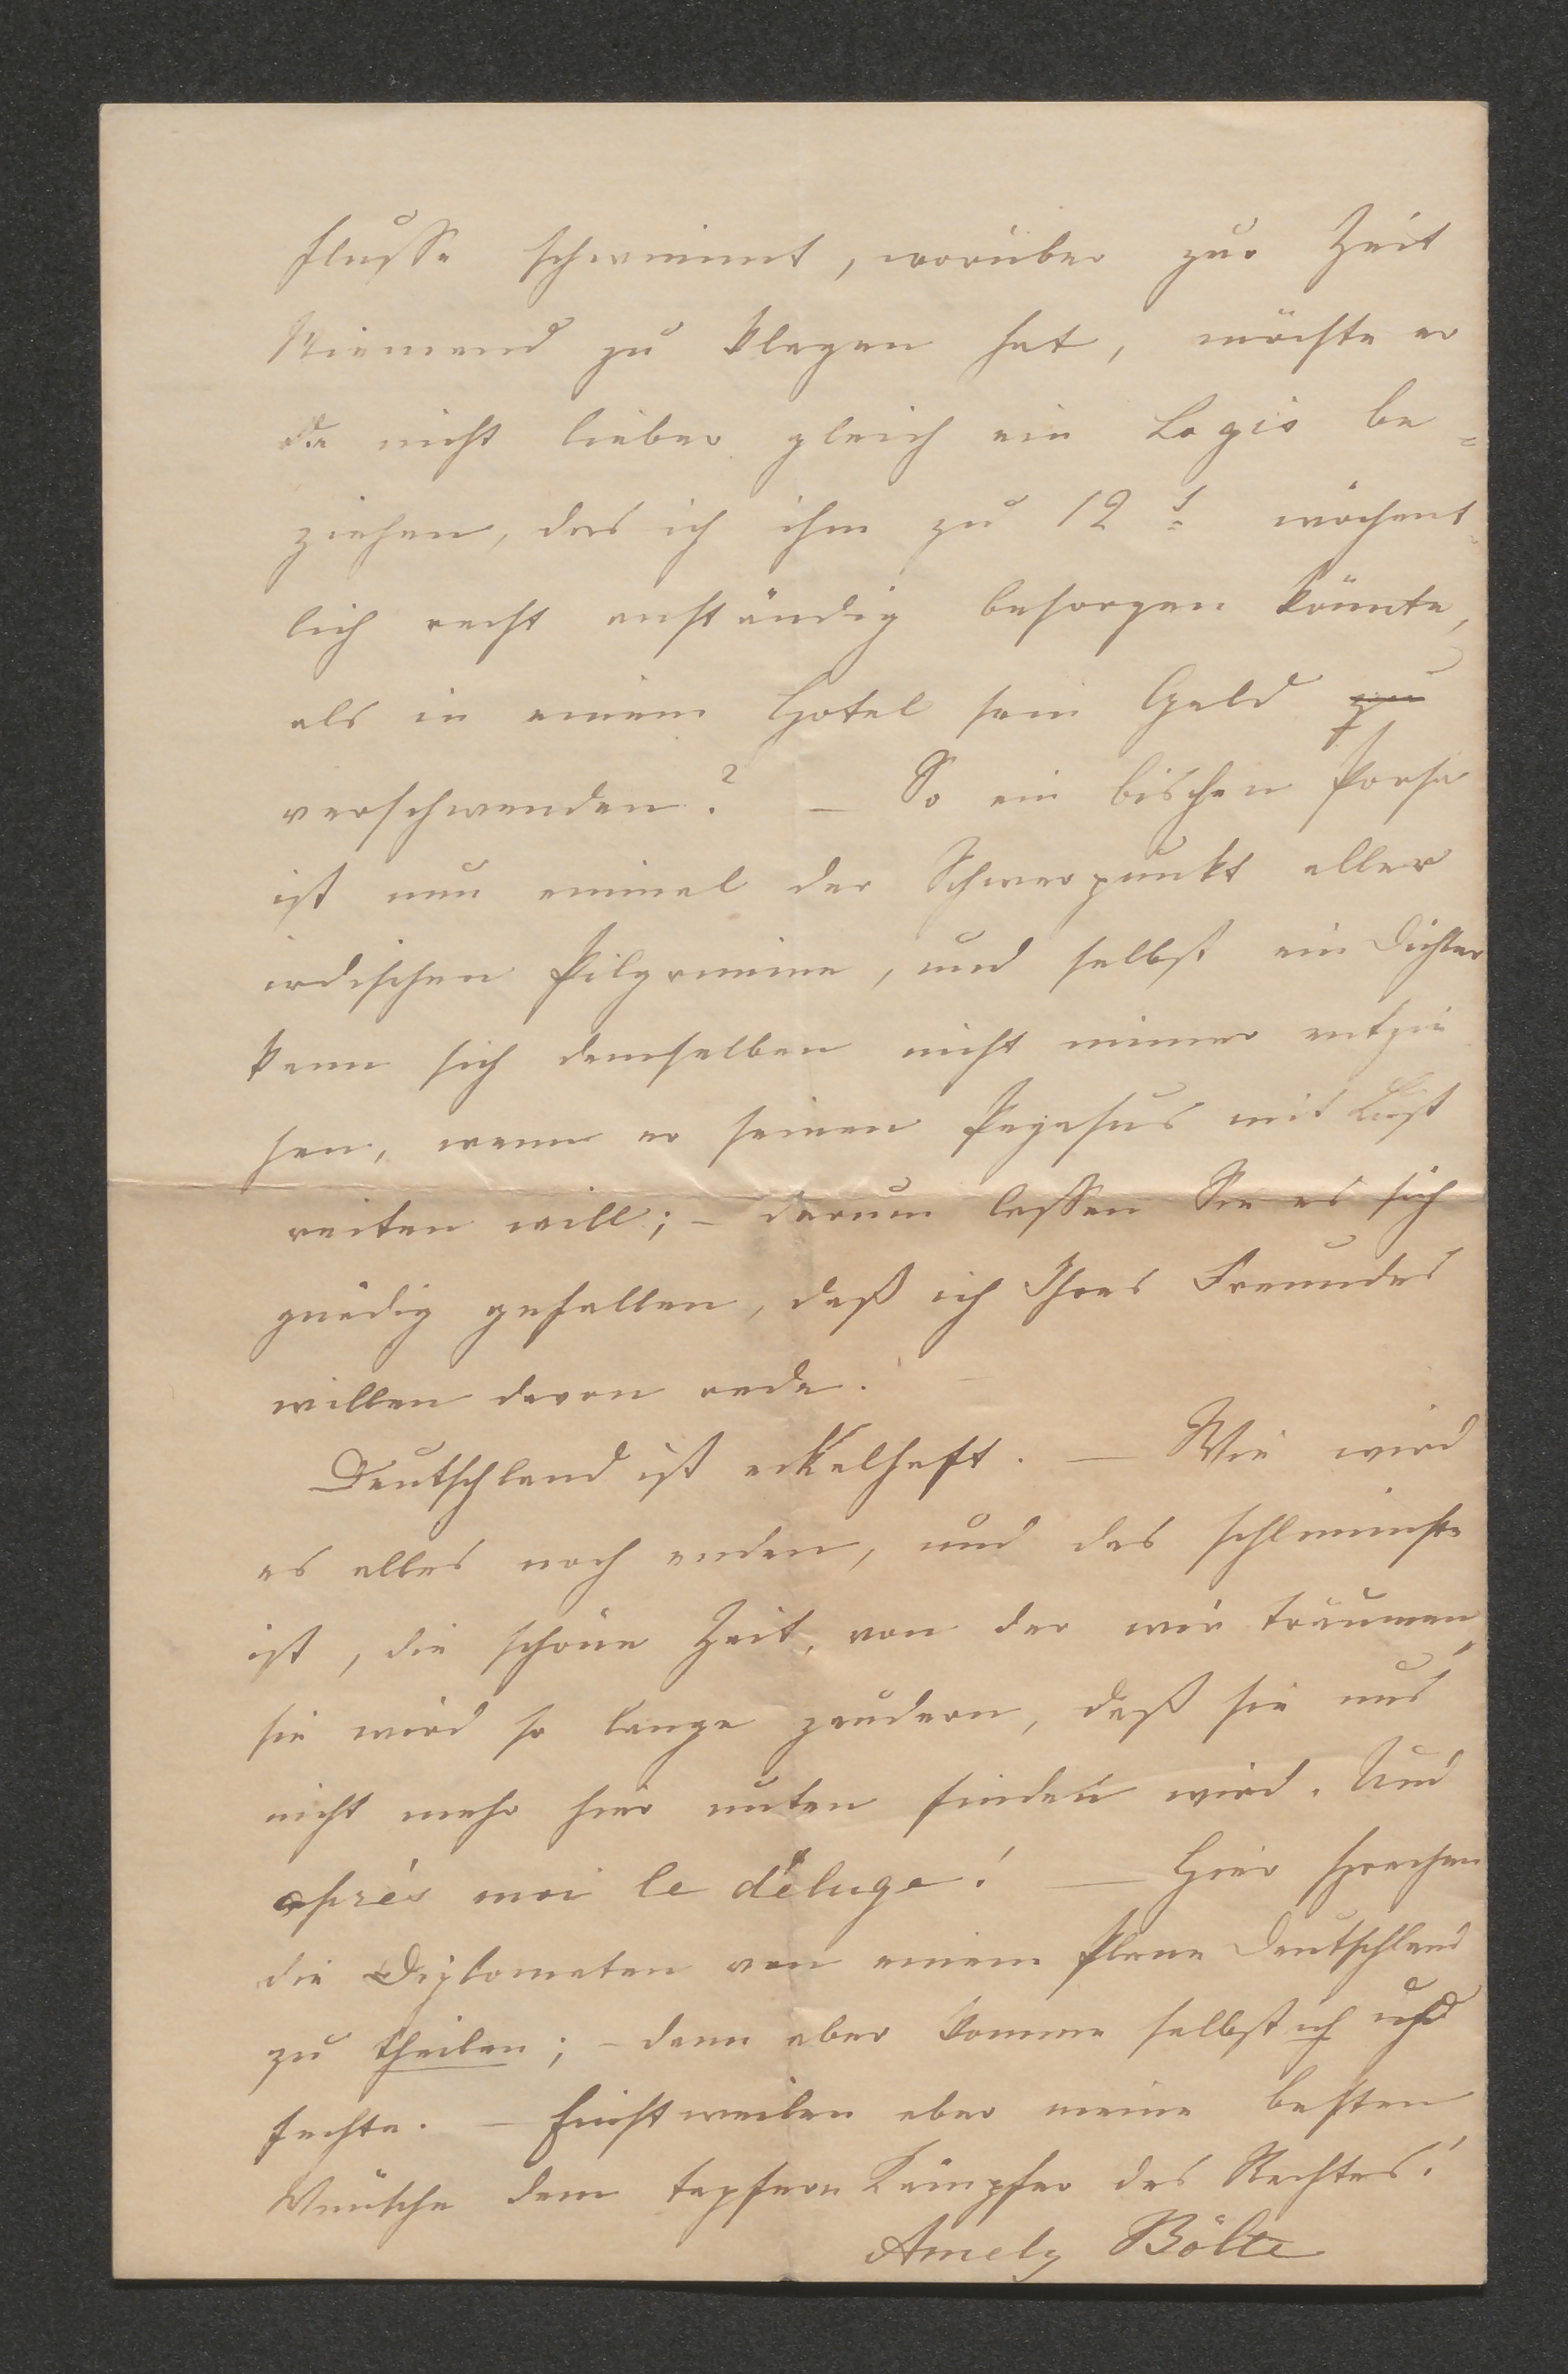 flusse schwimmt, worüber zur Zeit
Niemand zu klagen hat, möchte er
da nicht lieber gleich ein Logis be-
ziehen, das ich ihm zu 12 s wöchent-
lich recht anständig besorgen könnte,
als in einem Hotel sein Geld zu
verschwenden? — So ein bischen Porsa
ist nun einmal der Schwerpunkt aller
irdischen Pilgrimme, und selbst ein Dichter
kann sich demselben nicht immer entzie
hen, wenn er seinen Pegasus mit Lust
reiten will; – darum lassen Sie es sich
gnädig gefallen, daß ich Ihres Freundes
willen davon rede.
Deutschland ist eckelhaft. — Wie wird
es alles noch enden, und das schlimmste
ist, die schöne Zeit, von der wir träumen,
sie wird so lange zaudern, daß sie uns
nicht mehr hier unten finden wird. Und
après moi le déluge! — Hier sprechen
die Diplomaten von einem Plane Deutschland
zu theilen; – dann aber komme selbst ich und
fechte. – Einstweilen aber meine besten
Wünsche dem tapfern Kämpfer des Rechtes!
Amely Bölte